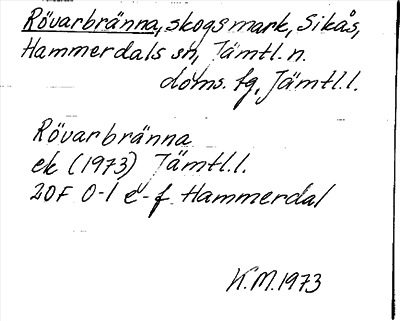 Rövarbränna, skogsmark, Sikås,
Hammerdals sn, Jämtl. n.
doms. fg, Jämtl.l.
Rövarbränna
ek (1973) Jämtl.l.
20F 0-1 e-f Hammerdal
K.M.1973